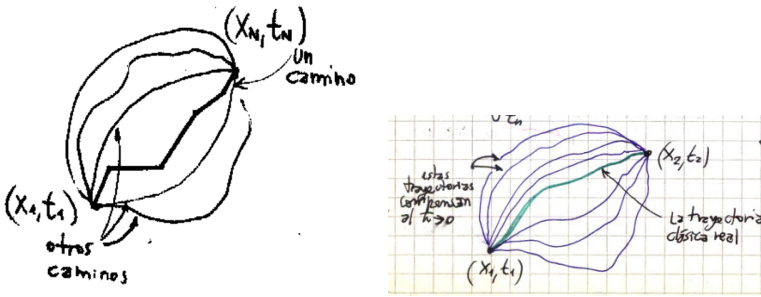 (XN, tN)
un
camino
(X1, t1)
otros
caminos
tn
estas
trayectorias
compensan
al ħ→0
(X2, t2)
La trayectoria
clásica real
(X1, t1)